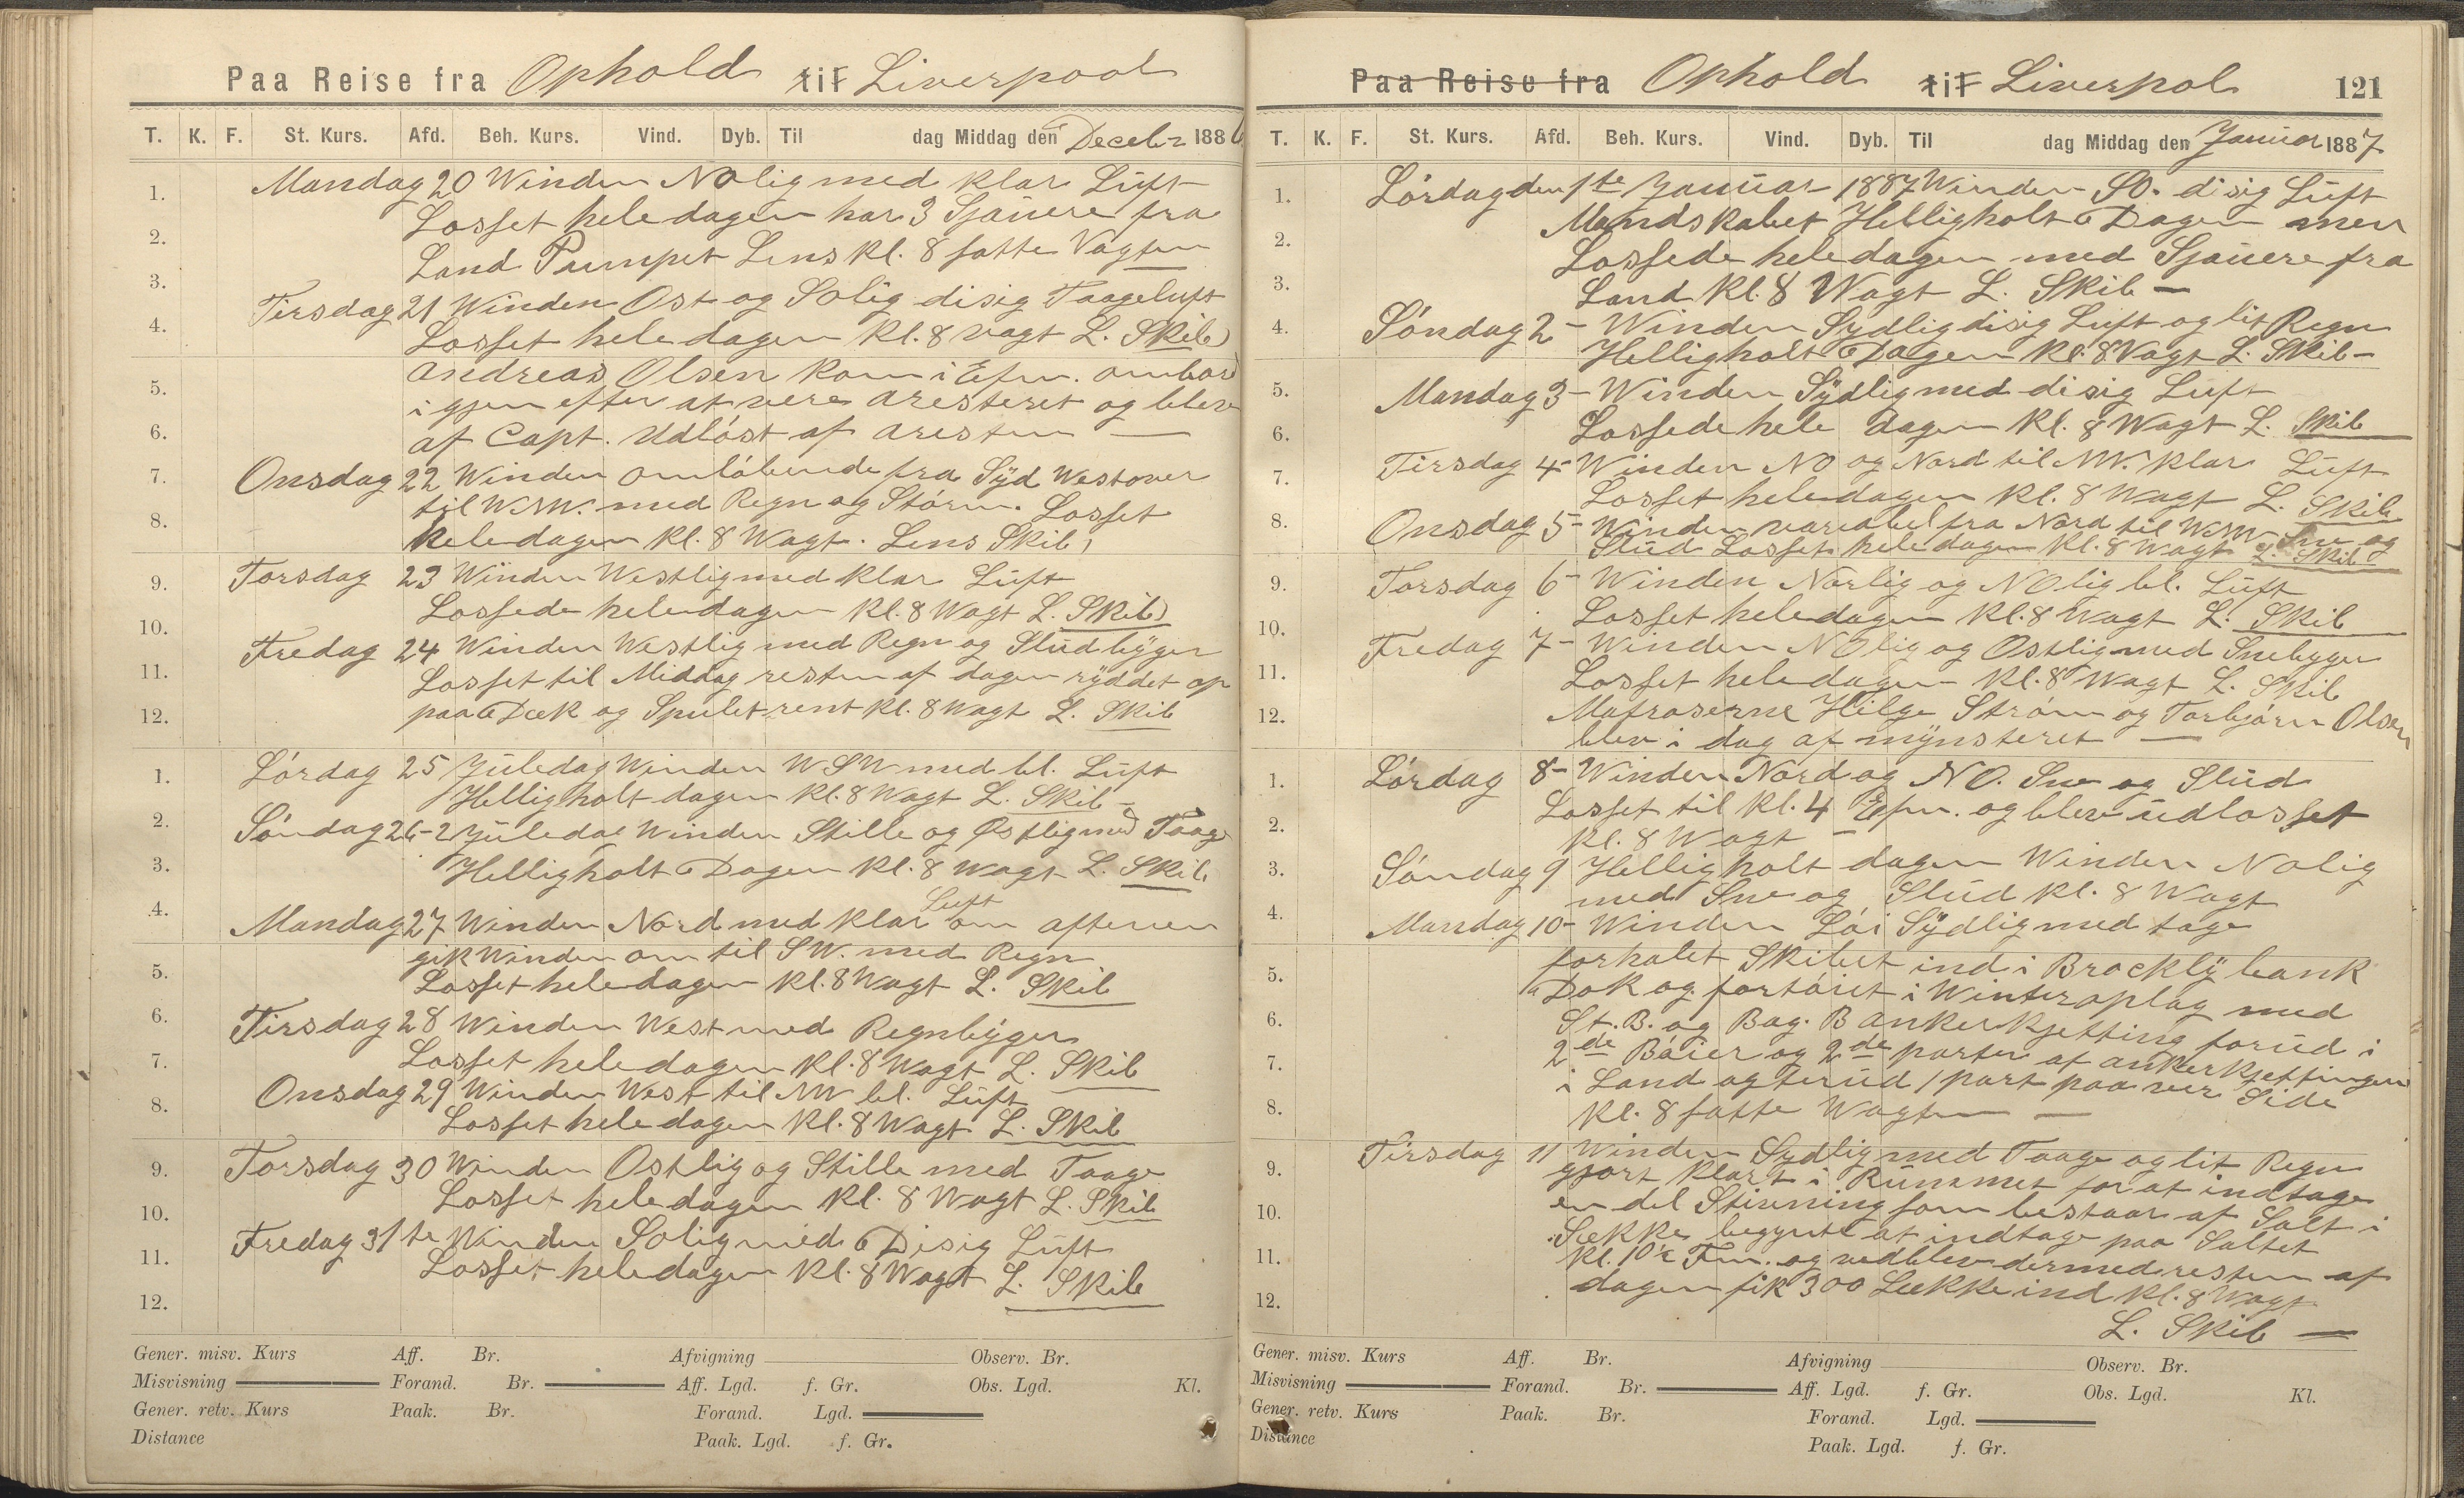 Paa Reise fra Ophold til Liverpool
T. K. F. St. Kurs. Afd. Beh. Kurs. Vind. Dyb. Til dag Middag den Decebr 1886
Mandag 20 Winden NOlig med klar Luft
Losset hele dagen har 3 Sjauere fra
Land Pumpet Lens kl. 8 satte Vagten
Tirsdag 21 Winden Ost og SOlig disig Taageluft
Losset hele dagen Kl. 8 vagt L. Skib
Andreas Olsen kom i Efm. ombord
igjen efter at være aresteret og blev
af Capt. Udløst af aresten —
Onsdag 22 Winden omløbende fra Syd Westover
til WNW. med Regn og Storm. Losset
hele dagen Kl. 8 Wagt. Lens Skib,
Torsdag 23 Winden Westlig med klar Luft
Lossede hele dagen Kl. 8 Wagt L. Skib
Fredag 24 Winden Westlig med Regn og Sludbyger
Losset til Middag resten af dagen ryddet op
paa Dæk og Spulet rent Kl. 8 Wagt L. Skib
Lórdag 25 Juledag Winden WSW med bl. Luft
Helligholt dagen Kl. 8 Wagt L. Skib -
Søndag 26-2 Juledag Winden Stille og Østlig med Taage
Helligholt Dagen Kl. 8 Wagt L. Skib
Mandag 27 Winden Nord med klar Luft om aftenen
gik Winden om til SW. med Regn
Losset hele dagen Kl. 8 Wagt L. Skib
Tirsdag 28 Winden West med Regnbyger
Losset hele dagen Kl. 8 Wagt L. Skib
Onsdag 29 Winden West til NW bl. Luft
Losset hele dagen Kl. 8 Wagt L. Skib
Torsdag 30 Winden Ostlig og Stille med Taage
Losset hele dagen Kl. 8 Wagt L. Skib
Fredag 31te Winden SOlig med Disig Luft
Losset hele dagen Kl. 8 Wagt L. Skib
1.
2.
3.
4.
5.
6.
7.
8.
9.
10.
11.
12.
1.
2.
3.
4.
5.
6.
7.
8.
9.
10.
11.
12.
Gener. misv. Kurs Aff. Br. Afvigning Observ. Br.
Misvisning Forand. Br. Aff. Lgd. f. Gr. Obs. Lgd. Kl.
Gener. retv. Kurs Paak. Br. Forand. Lgd.
Distance Paak. Lgd. f. Gr.
Paa Reise fra Ophold til Liverpol 121
T. K. F. St. Kurs. Afd. Beh. Kurs. Vind. Dyb. Til dag Middag den Januar 1887
Lórdag den 1te Januar 1887 Winden SO. disig Luft
Mandskabet Helligholt Dagen men
Lossede hele dagen med Sjauere fra
Land Kl. 8 Wagt L. Skib —
Sóndag 2 - Winden Sydlig disig Luft og lit Regn
Helligholt Dagen Kl. 8 Vagt L. Skib -
Mandag 3 - Winden Sydlig med disig Luft
Lossede hele dagen Kl. 8 Wagt L. Skib
Tirsdag 4 - Winden NO og Nord til NW. klar Luft
Losset hele dagen Kl. 8 Wagt L. Skib
Onsdag 5 - Winden variabel fra Nord til WNW Sne og
Slud Losset hele dagen Kl. 8 Wagt L. Skib
Torsdag 6 - Winden Norlig og NOlig bl. Luft
Losset hele dagen Kl. 8 Wagt L. Skib
Fredag 7 - Winden NOlig og Ostlig med Snebyger
Losset hele dagen Kl. 8 Wagt L. Skib
Matroserne Helge Strøm og Torbjørn Olsen
blev i dag af mynsteret —
Lórdag 8 - Winden Nord og NO. Sne og Slud
Losset til Kl. 4 Efm. og blev udlosset
Kl. 8 Wagt —
Sóndag 9 Helligholt dagen Winden NOlig
med Sne og Slud Kl. 8 Wagt
Mandag 10 - Winden Lói Sydlig med tage
forhalet Skibet ind i Brockly bank
Dok og fortóiet i Winteroplag med
St. B. og Bag. B ankerkjetting forud i
2de Bóier og 2de parter af ankerkjettingen
i Land agterud 1 part paa ver Side
Kl. 8 satte Wagten —
Tirsdag 11 Winden Sydlig med Taage og lit Regn
gjort klart i Rummet for at indtage
en del Stivning som bestaar af Salt i
Sekke begynte at indtage paa Saltet
Kl. 10½ Fm. og vedblev dermed resten af
dagen fik 300 Sekke ind Kl. 8 Wagt
L. Skib —
1.
2.
3.
4.
5.
6.
7.
8.
9.
10.
11.
12.
1.
2.
3.
4.
5.
6.
7.
8.
9.
10.
11.
12.
Gener. misv. Kurs Aff. Br. Afvigning Observ. Br.
Misvisning Forand. Br. Aff. Lgd. f. Gr. Obs. Lgd. Kl.
Gener. retv. Kurs Paak. Br. Forand. Lgd.
Distance Paak. Lgd. f. Gr.